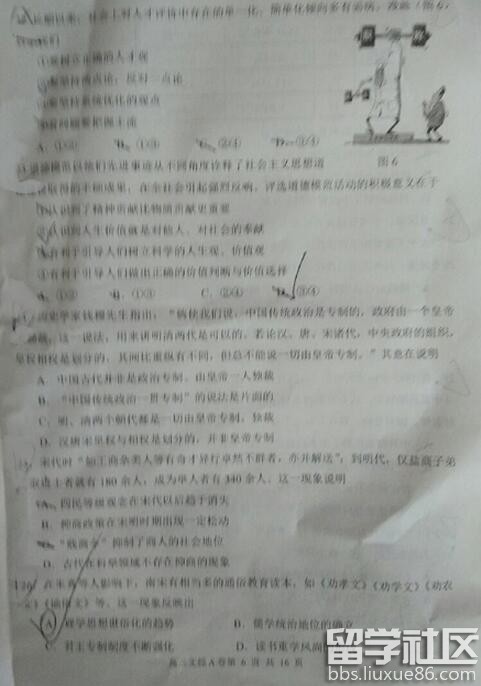 长期以来，社会上对人才评价中存在的单一化、简单化倾向多有
①要树立正确的人才观
②要坚持两点论，反对一点论
③要坚持系统优化的观点
④看问题要把握主流
A．①② B．①③ C．②④ D．③④
图 6
道德模范以他们先进事迹从不同角度诠释了社会主义思想道
取得的丰硕成果，在全社会引起强烈反响。评选道德模范活动的积极意义在于
认识到了精神贡献比物质贡献更重要
认识到人生价值就是对他人、对社会的奉献
有利于引导人们树立科学的人生观、价值观
④有利于引导人们做出正确的价值判断与价值选择
B．①③ C．②④ D．③④
历史学家钱穆先生指出：“倘使我们说，中国传统政治是专制的，政府由一个皇帝
，这一说法，用来讲明清两代是可以的。若论汉、唐、宋诸代，中央政府的组织，
皇权相权是划分的，其间比重纵有不同，但总不能说一切由皇帝专制。”其意在说明
A．中国古代并非是政治专制、由皇帝一人独裁
B．“中国传统政治一贯专制”的说法是片面的
C．明、清两个朝代都是一切由皇帝专制、独裁
D．汉唐宋皇权与相权是划分的，并非皇帝专制
宋代时“如工商杂类人等有奇才异行卓然不群者，亦并解送”；到明代，仅盐商子弟
取进士者就有 180 余人，成为举人者有 340 余人。这一现象说明
A．四民等级观念在宋代以后趋于消失
B．抑商政策在宋明时期出现一定松动
C．“贱商令”抑制了商人的社会地位
D．古代在科举领域不存在抑商的现象
26 在朱熹等人影响下，南宋有相当多的通俗教育读本，如《劝孝文》《劝学文》《劝农
文》《谕俗文》等。这一现象反映出
A．理学思想世俗化的趋势 B．儒学统治地位的确立
C．君主专制制度不断强化 D．读书重学风尚
高三文综A卷第 6 页 共 16 页
留学社区
bbs.liuxue86.com